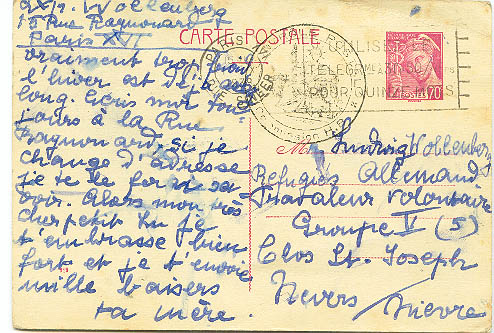 Exp. Wollenberg
15 Rue Raynouard
Paris XVI
CARTE POSTALE
vraiment trop pour
l'hiver est si
long. Ecris moi tou
jours à la Rue
Raynouard, si je
change d'adresse
je te le ferai sa
voir. Alors mon très
cher petit je
t'embrasse bien
fort et je t'envoie
mille baisers
ta mère.
PARIS
UTILISEZ LES
POUR QUINZE
70
Mr Ludwig Wollenberg
Refugiés Allemand
Travaleur volontaire
Groupe V (5)
Clos St. Joseph
Nevers / Nievre